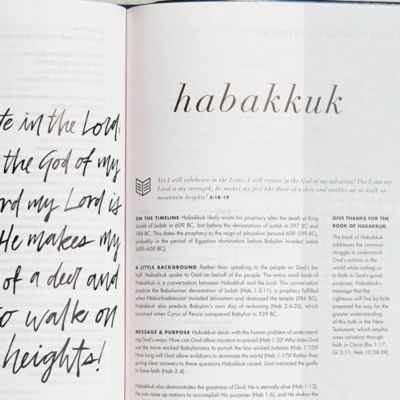 te in the Lord;
the God of my
rd my Lord is
He makes my
of a deer and
to walk on
heights!
habakkuk
Yet I will celebrate in the LORD, I will rejoice in the God of my salvation! The LORD my
Lord is my strength; he makes my feet like those of a deer and enables me to walk on
mountain heights! 3:18-19
ON THE TIMELINE Habakkuk likely wrote his prophecy after the death of King
Josiah of Judah in 609 BC, but before the devastations of Judah in 597 BC and
586 BC. This dates the prophecy to the reign of Jehoiakim (around 609-599 BC),
probably in the period of Egyptian domination before Babylon invaded Judah
(609-605 BC).
A LITTLE BACKGROUND Rather than speaking to the people on God's be-
half, Habakkuk spoke to God on behalf of the people. The entire small book of
Habakkuk is a conversation between Habakkuk and the Lord. This conversation
predicts the Babylonian devastation of Judah (Hab 1:5-11), a prophecy fulfilled
when Nebuchadnezzar invaded Jerusalem and destroyed the temple (586 BC).
Habakkuk also predicts Babylon's own day of reckoning (Hab 2:6-20), which
occurred when Cyrus of Persia conquered Babylon in 539 BC.
MESSAGE & PURPOSE Habakkuk deals with the human problem of understand-
ing God's ways: How can God allow injustice to prevail (Hab 1:3)? Why does God
use the more wicked Babylonians to punish the less wicked Judeans (Hab 1:13)?
How long will God allow evildoers to dominate the world (Hab 1:17)? Rather than
giving clear answers to these questions Habakkuk raised, God instructed the godly
to have faith (Hab 2:4).
Habakkuk also demonstrates the greatness of God. He is eternally alive (Hab 1:12).
He can raise up nations to accomplish His purposes (Hab 1:6), and He chooses
GIVE THANKS FOR THE
BOOK OF HABAKKUK
The book of Habakkuk
addresses the common
struggle to understand
God's actions in the
world while calling us
to faith in God's good
purposes. Habakkuk's
message that the
righteous will live by faith
prepared the way for the
greater understanding
of this truth in the New
Testament, which empha-
sizes salvation through
faith in Christ (Rm 1:17;
Gl 3:11; Heb 10:38-39).